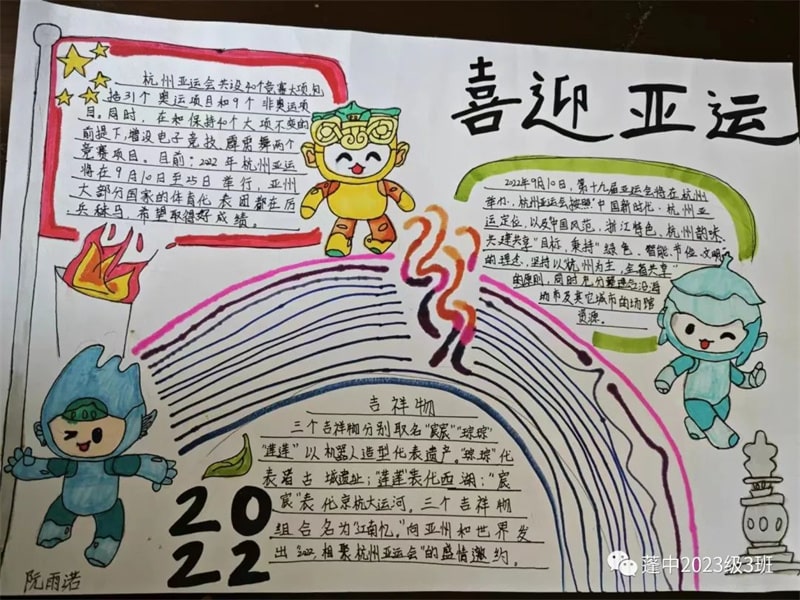 喜迎亚运
杭州亚运会共设40个竞赛大项包
括31个奥运项目和9个非奥运项
目。同时,在如保持40个大项不变的
前提下,增设电子竞技、霹雳舞两个
竞赛项目。目前:2022年杭州亚运
将在9月10日至25日举行,亚洲
大部分国家的体育代表团都在厉
兵秣马,希望取得好成绩。
2022年9月10日,第十九届亚运会将在杭州
举办,杭州亚运会按照"中国新时代·杭州亚
运定位,以及中国风范,浙江特色,杭州韵味,
共建共享"目标,秉持"绿色、智能、节俭、文明"
的理念,坚持以"杭州为主,全省共享"
的原则,同时充分
市及其它城市的场馆
资源。
吉祥物
三个吉祥物分别取名"宸宸""琮琮"
"莲莲"以机器人造型代表遗产。"琮琮"代
表着古城遗址;"莲莲"表代西湖;"宸
宸"表代京杭大运河。三个吉祥物
组合名为"江南忆。"向亚州和世界发
出2022,相聚杭州亚运会"的盛情邀约。
20
22
阮雨诺
蓬中2023级3班